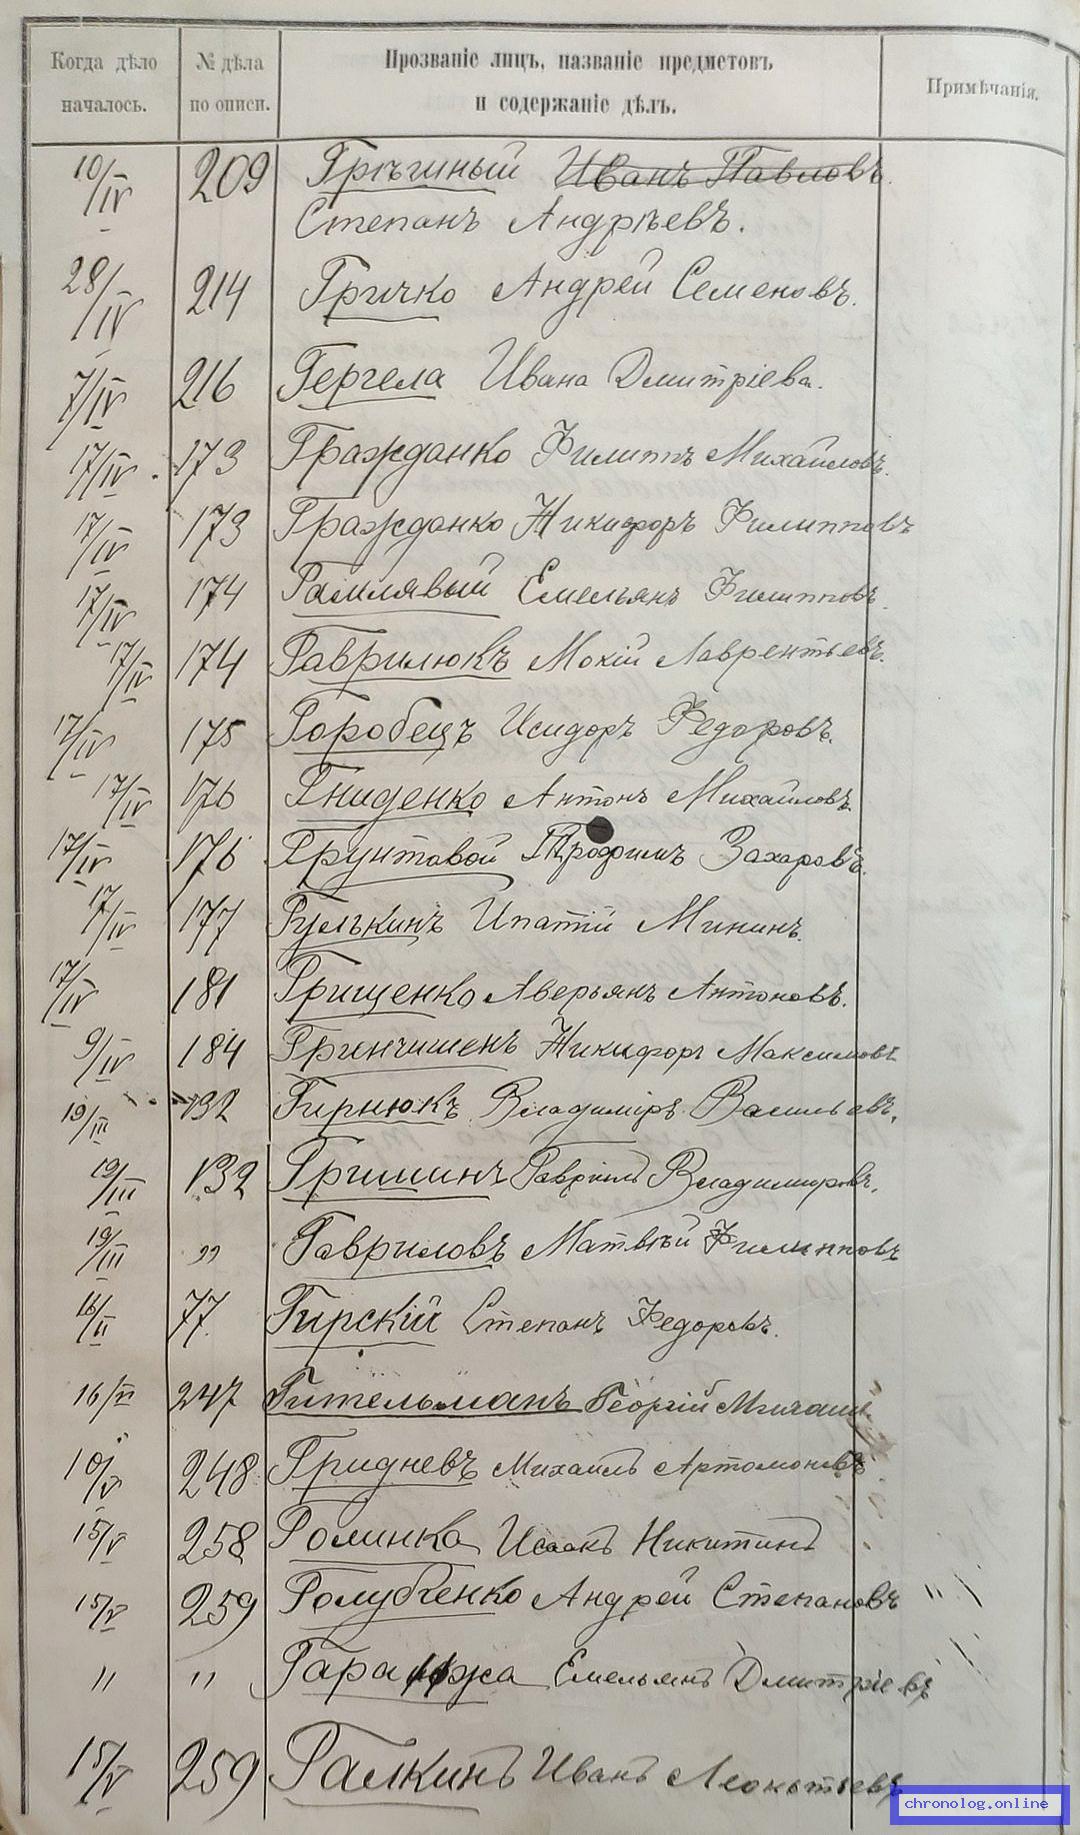 Когда дѣло началось.
№ дѣла по описи.
Прозваніе лицъ, названіе предметовъ
и содержаніе дѣлъ.
Примѣчанія.
10/IV 209 Иванъ Павловъ.
Степанъ Андрѣевъ.
28/IV 214 Гричко Андрей Семеновъ.
7/IV 216 Гергела Ивана Дмитріева.
17/IV 173 Гражданко Филиппъ Михайловъ.
17/IV 173 Гражданко Никифоръ Филипповъ
17/IV 174 Емельянъ Филипповъ.
17/IV 174 Гаврилюкъ Мокій Лаврентьевъ.
17/IV 175 Горобецъ Исидоръ Федоровъ.
17/IV 176 Гниденко Антонъ Михайловъ.
17/IV 176 Грунтовой Трофимъ Захаровъ.
17/IV 177 Гулькинъ Ипатій Мининъ.
17/IV 181 Грищенко Аверьянъ Антоновъ.
9/IV 184 Гринчишенъ Никифоръ Максимовъ
19/III 132 Гирнюкъ Владиміръ Васильевъ.
19/III 132 Гришинъ Гавріилъ Владимировъ.
19/III " Гавриловъ Матвѣй Филипповъ
16/II 77. Гирскій Степанъ Федоровъ.
16/V 247 Гительманъ Георгій
10/V 248 Гридневъ Михаилъ Артомоновъ
15/V 258 Гоминка Исаакъ Никитинъ
15/V 259 Голубченко Андрей Степановъ "
" " Гаранжа Емельянъ Дмитріевъ
15/V 259 Галкинъ Иванъ Леонтьевъ
chronolog.online